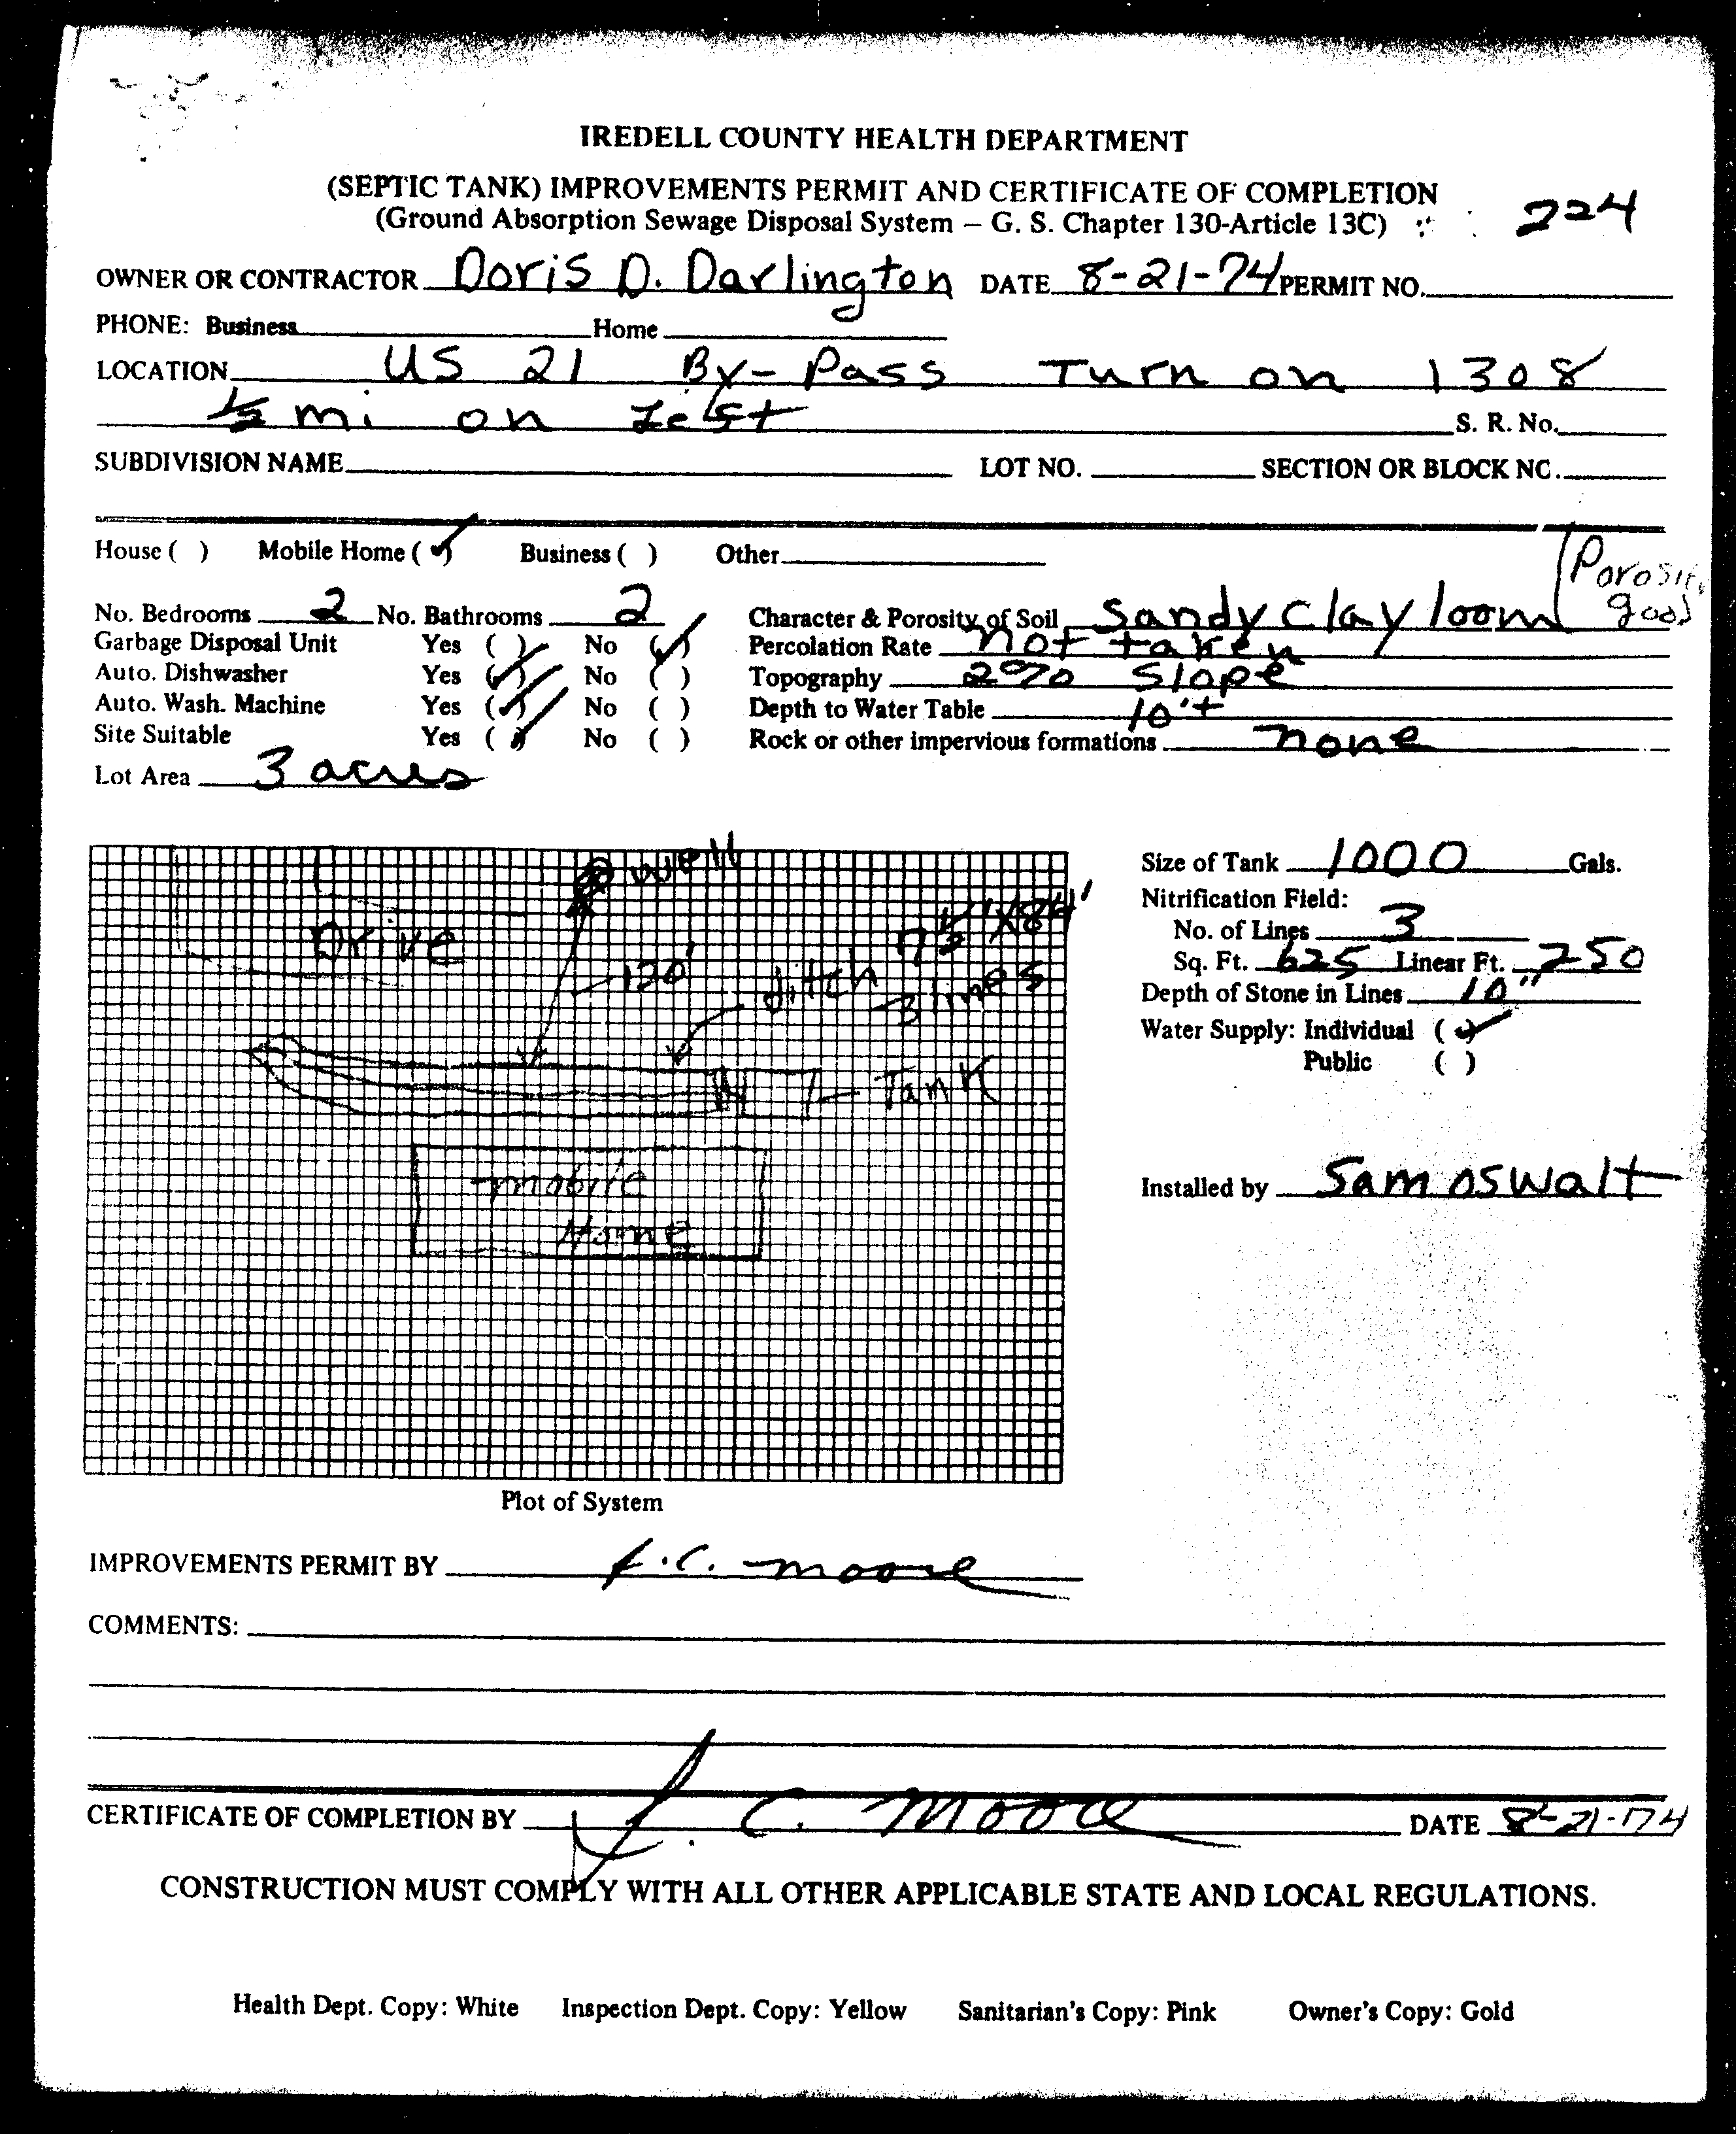 IREDELL COUNTY HEALTH DEPARTMENT
(SEPTIC TANK) IMPROVEMENTS PERMIT AND CERTIFICATE OF COMPLETION
(Ground Absorption Sewage Disposal System – G. S. Chapter 130-Article 13C) 224
OWNER OR CONTRACTOR Doris D. Darlington DATE 8-21-74 PERMIT NO.
PHONE: Business Home
LOCATION US 21 By-Pass Turn on 1308
1/2 mi on Left S. R. No.
SUBDIVISION NAME LOT NO. SECTION OR BLOCK NO.
House ( ) Mobile Home (✓) Business ( ) Other
Porosity
good
No. Bedrooms 2 No. Bathrooms 2 Character & Porosity of Soil Sandy Clay loom
Garbage Disposal Unit Yes ( ) No (✓) Percolation Rate not taken
Auto. Dishwasher Yes (✓) No ( ) Topography 2% Slope
Auto. Wash. Machine Yes (✓) No ( ) Depth to Water Table 10'+
Site Suitable Yes (✓) No ( ) Rock or other impervious formations none
Lot Area 3 acres
well
Drive
130'
ditch
3 lines
Tank
mobile
Home
Size of Tank 1000 Gals.
Nitrification Field:
No. of Lines 3
Sq. Ft. 625 Linear Ft. 250
Depth of Stone in Lines 10"
Water Supply: Individual (✓)
Public ( )
Installed by Sam Oswalt
Plot of System
IMPROVEMENTS PERMIT BY J.C. Moore
COMMENTS:
CERTIFICATE OF COMPLETION BY J. C. Moore DATE 8-21-74
CONSTRUCTION MUST COMPLY WITH ALL OTHER APPLICABLE STATE AND LOCAL REGULATIONS.
Health Dept. Copy: White Inspection Dept. Copy: Yellow Sanitarian's Copy: Pink Owner's Copy: Gold